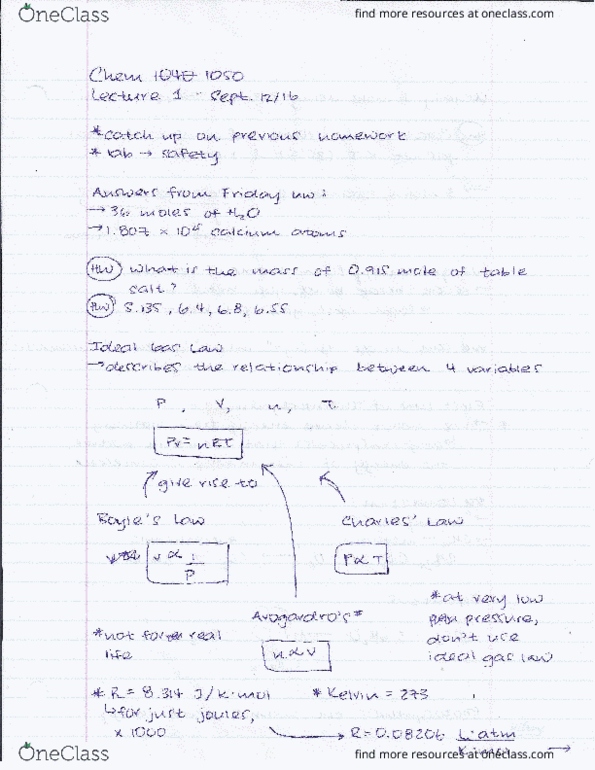 OneClass
find more resources at oneclass.com
Chem 1040 1050
Lecture 1 - Sept. 12/16
*catch up on previous homework
* lab → safety
Answers from Friday HW:
→ 36 moles of H₂O
→ 1.807 × 10 calcium atoms
HW What is the mass of 0.915 mole of table
salt?
HW 5.135, 6.4, 6.8, 6.55
Ideal Gas Law
→ describes the relationship between 4 variables
P , V, n, T
PV = nRT
give rise to
Boyle's Law
Charles' Law
V ∝ 1/P
P ∝ T
Avogardro's*
n ∝ V
*at very low
pressure,
don't use
ideal gas law
*not for real
life
* R = 8.314 J/K·mol
* Kelvin = 273
↳ for just joules,
x 1000
→ R = 0.08206 L·atm
K·mol →
OneClass
find more resources at oneclass.com